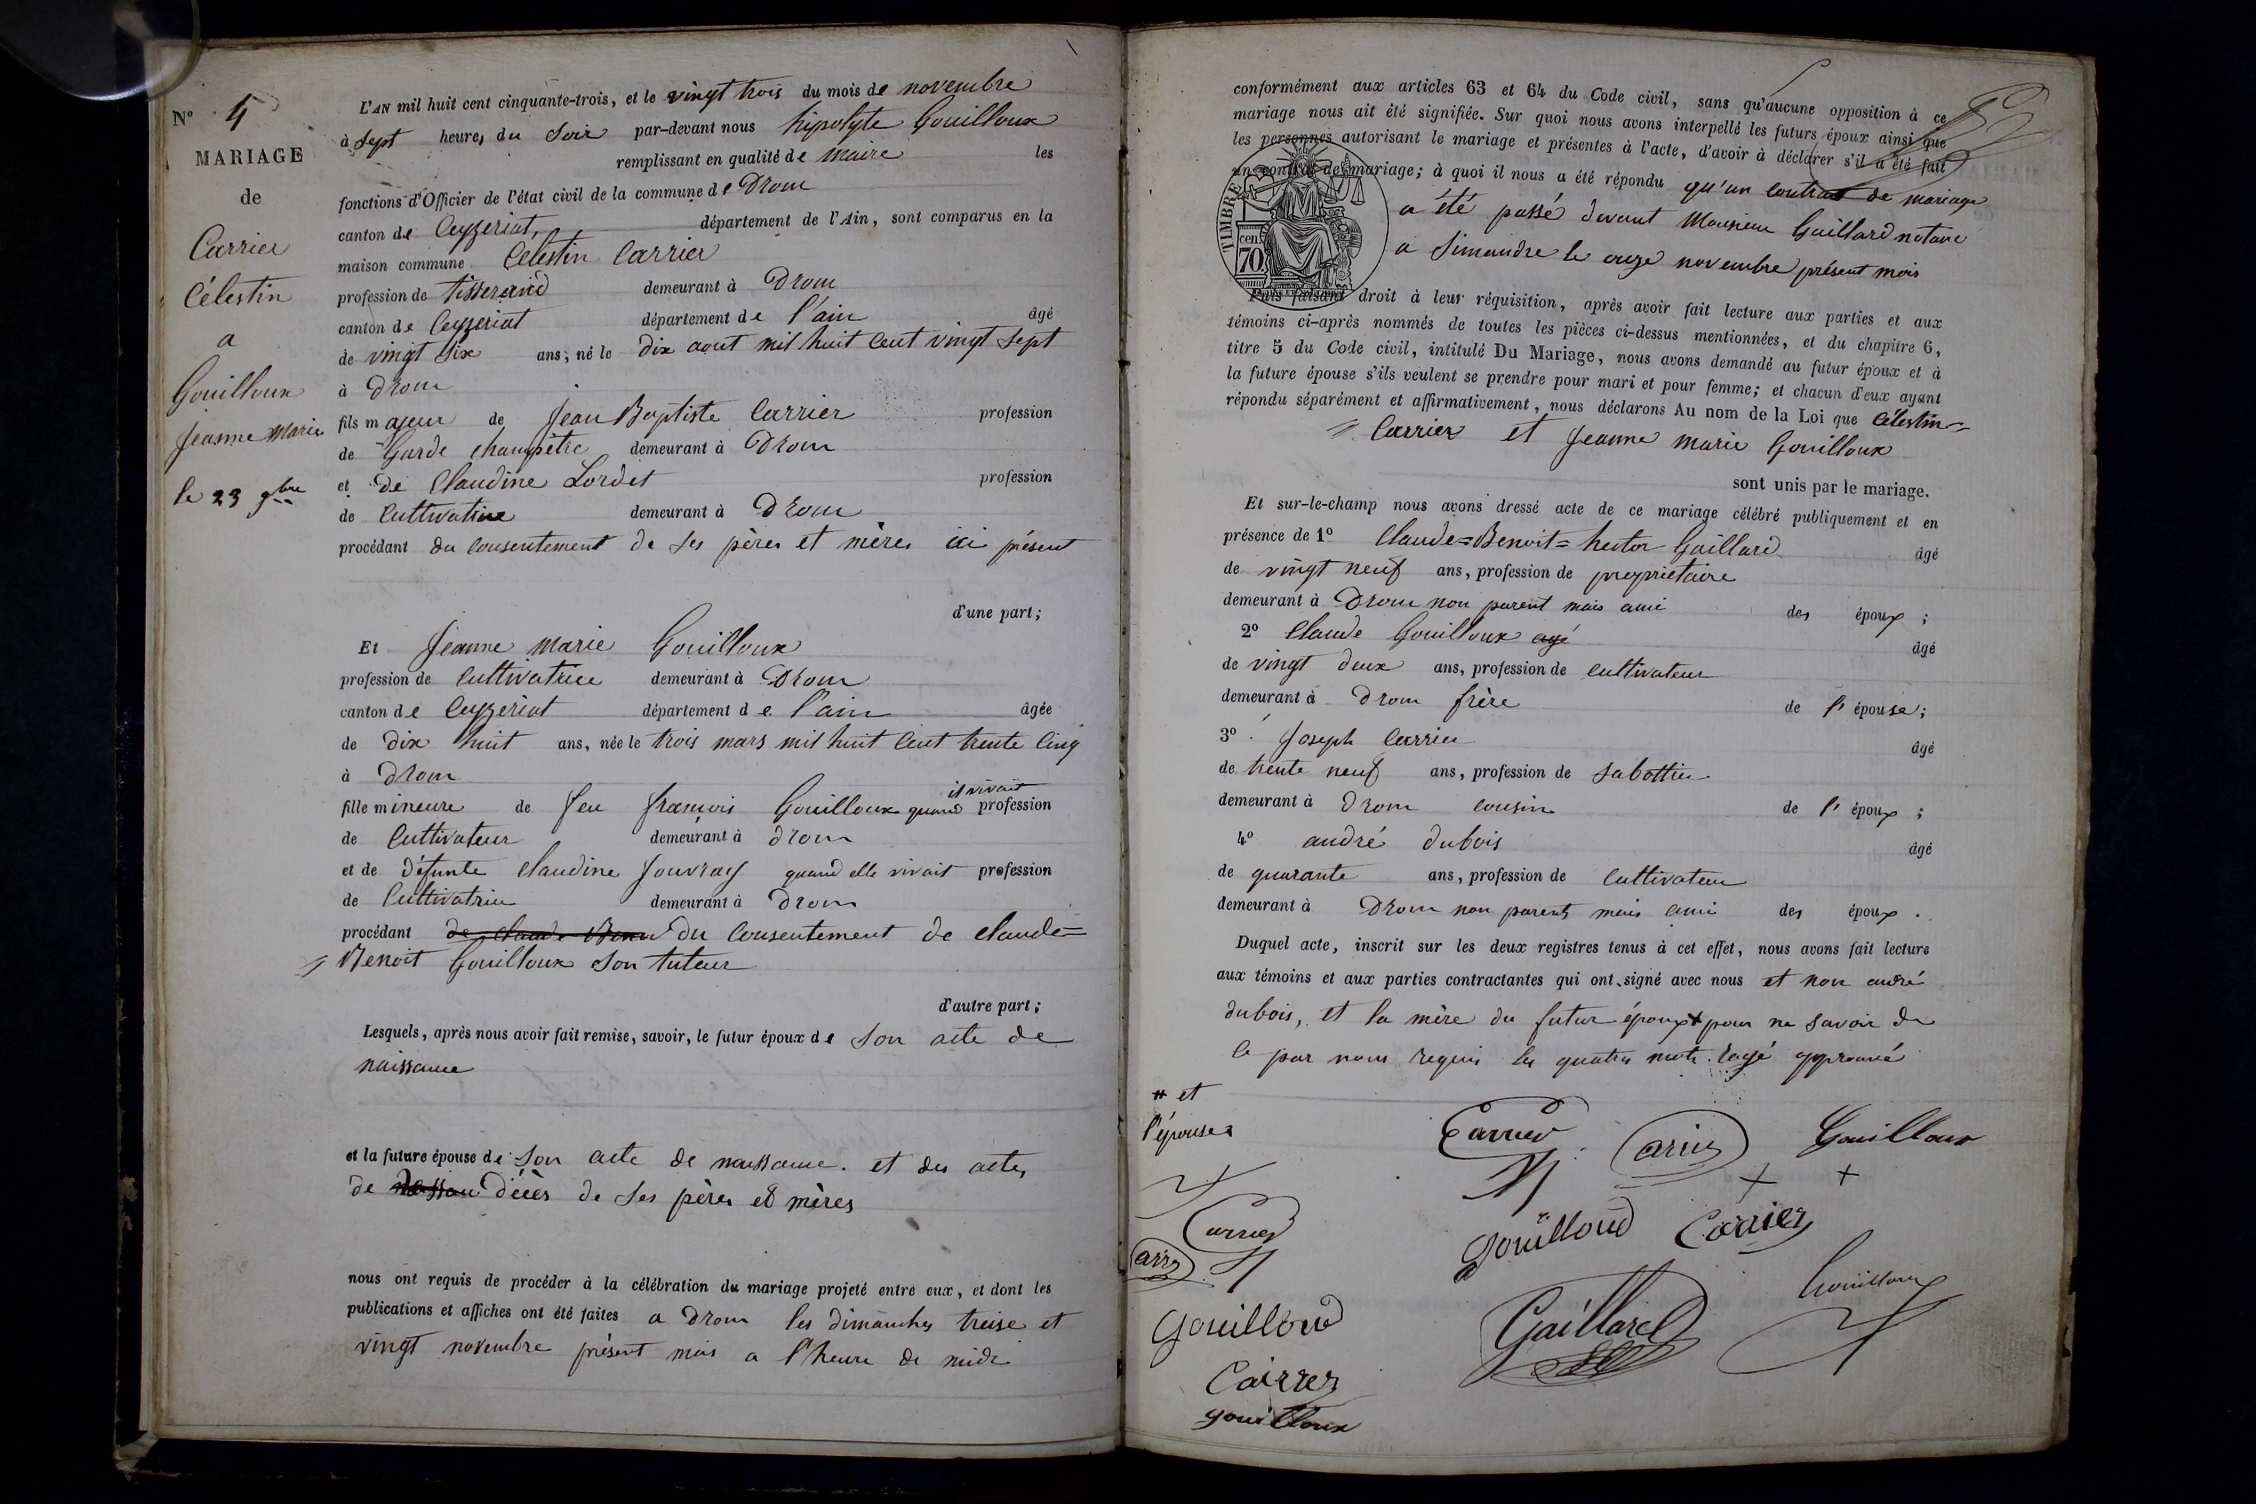 Nº 4
MARIAGE
de
Carrier
Célestin
a
Gouilloux
Jeanne Marie
le 23 9bre
L'AN mil huit cent cinquante-trois, et le vingt trois du mois de novembre
à sept heures du soir par-devant nous hipolyte Gouilloux
remplissant en qualité de maire les
fonctions d'Officier de l'état civil de la commune de Drom
canton de Ceyzeriat, département de l'Ain, sont comparus en la
maison commune Celestin Carrier
profession de tisserand demeurant à Drom
canton de Ceyzeriat département de l'ain âgé
de vingt six ans, né le dix aout mil huit cent vingt sept
à Drom
fils majeur de Jean Baptiste Carrier profession
de Garde champêtre demeurant à Drom
et de Claudine Lordet profession
de Cultivatrice demeurant à Drom
procédant du consentement de ses pères et mères ici présent
d'une part;
Et Jeanne marie Gouilloux
profession de Cultivatrice demeurant à Drom
canton de Ceyzeriat département de l'ain âgée
de dix huit ans, née le trois mars mil huit cent trente cinq
à Drom
fille mineure de feu françois Gouilloux quand il vivait profession
de Cultivateur demeurant à drom
et de défunte Claudine Jouvray quand elle vivait profession
de Cultivatrice demeurant à Drom
procédant de claude Benoi du consentement de claude=
Benoit Gouilloux son tuteur
d'autre part;
Lesquels, après nous avoir fait remise, savoir, le futur époux de son acte de
naissance
et la future épouse de son acte de naissance. et des actes
de décès de ses pères et mères
nous ont requis de procéder à la célébration du mariage projeté entre eux, et dont les
publications et affiches ont été faites a Drom les dimanches treise et
vingt novembre présent mois a l'heure de midi
conformément aux articles 63 et 64 du Code civil, sans qu'aucune opposition à ce
mariage nous ait été signifiée. Sur quoi nous avons interpellé les futurs époux ainsi que
les personnes autorisant le mariage et présentes à l'acte, d'avoir à déclarer s'il a été fait
un contrat de mariage; à quoi il nous a été répondu qu'un contrat de mariage
a été passé devant Monsieur Gaillard notaire
a Simandre le onze novembre présent mois
TIMBRE
cen.
70
Puis faisant droit à leur réquisition, après avoir fait lecture aux parties et aux
témoins ci-après nommés de toutes les pièces ci-dessus mentionnées, et du chapitre 6,
titre 5 du Code civil, intitulé Du Mariage, nous avons demandé au futur époux et à
la future épouse s'ils veulent se prendre pour mari et pour femme; et chacun d'eux ayant
répondu séparément et affirmativement, nous déclarons Au nom de la Loi que Célestin=
Carrier et Jeanne marie Gouilloux
sont unis par le mariage.
Et sur-le-champ nous avons dressé acte de ce mariage célébré publiquement et en
présence de 1º Claude=Benoit=hector Gaillard âgé
de vingt neuf ans, profession de proprietaire
demeurant à Drom non parent mais ami des époux;
2º Claude Gouilloux agé âgé
de vingt deux ans, profession de cultivateur
demeurant à Drom frère de l'épouse;
3º Joseph Carrier âgé
de trente neuf ans, profession de sabottier
demeurant à Drom cousin de l'époux;
4º andré dubois âgé
de quarante ans, profession de cultivateur
demeurant à Drom non parents mais ami des époux.
Duquel acte, inscrit sur les deux registres tenus à cet effet, nous avons fait lecture
aux témoins et aux parties contractantes qui ont signé avec nous et non andré
dubois, et la mère du futur époux pour ne savoir de
ce par nous requis les quatre mots rayé approuvé
# et
l'épouse
Carrier
Carrier
Gouilloux
gouilloud
Carrier
Gaillard
Gouilloux
Carrier
Carrier
gouilloud
Cairrer
gouilloux